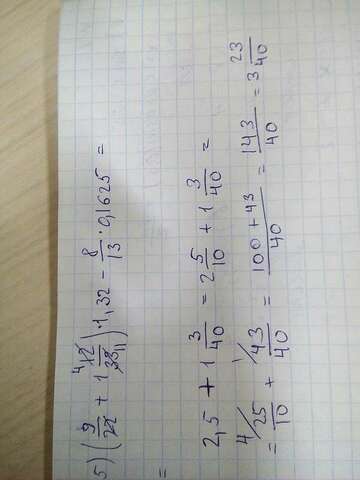 5) (9/22 + 1 12/33) · 1,32 - 8/13 · 0,1625 =
4 11
=
2,5 + 1 3/40 = 2 5/10 + 1 3/40 =
= 4/ 25/10 + 1/ 43/40 = 100 + 43/40 = 143/40 = 3 23/40